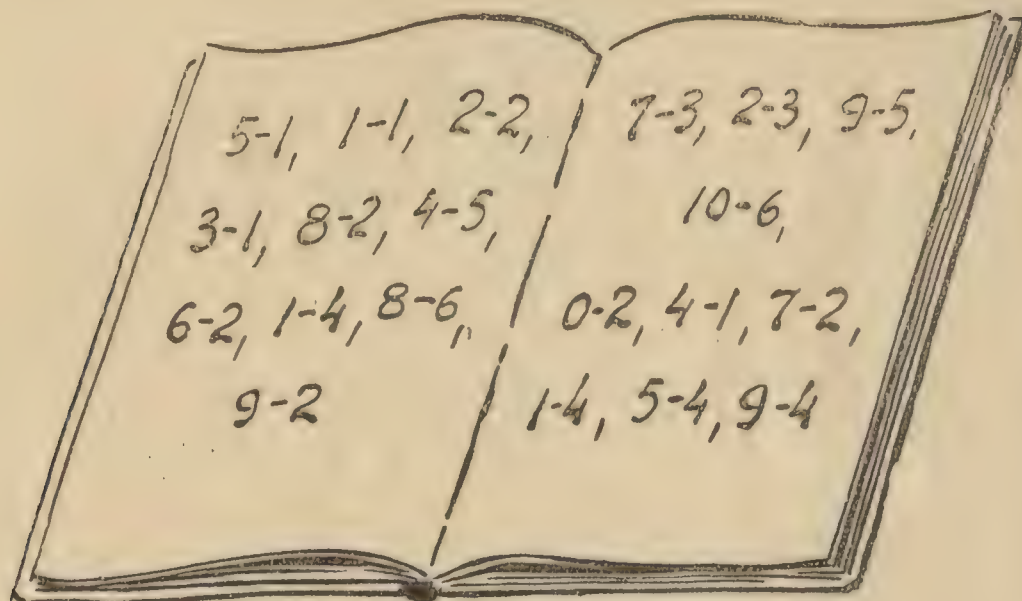 5-1, 1-1, 2-2,
3-1, 8-2, 4-5,
6-2, 1-4, 8-6,
9-2
7-3, 2-3, 9-5,
10-6,
0-2, 4-1, 7-2,
1-4, 5-4, 9-4